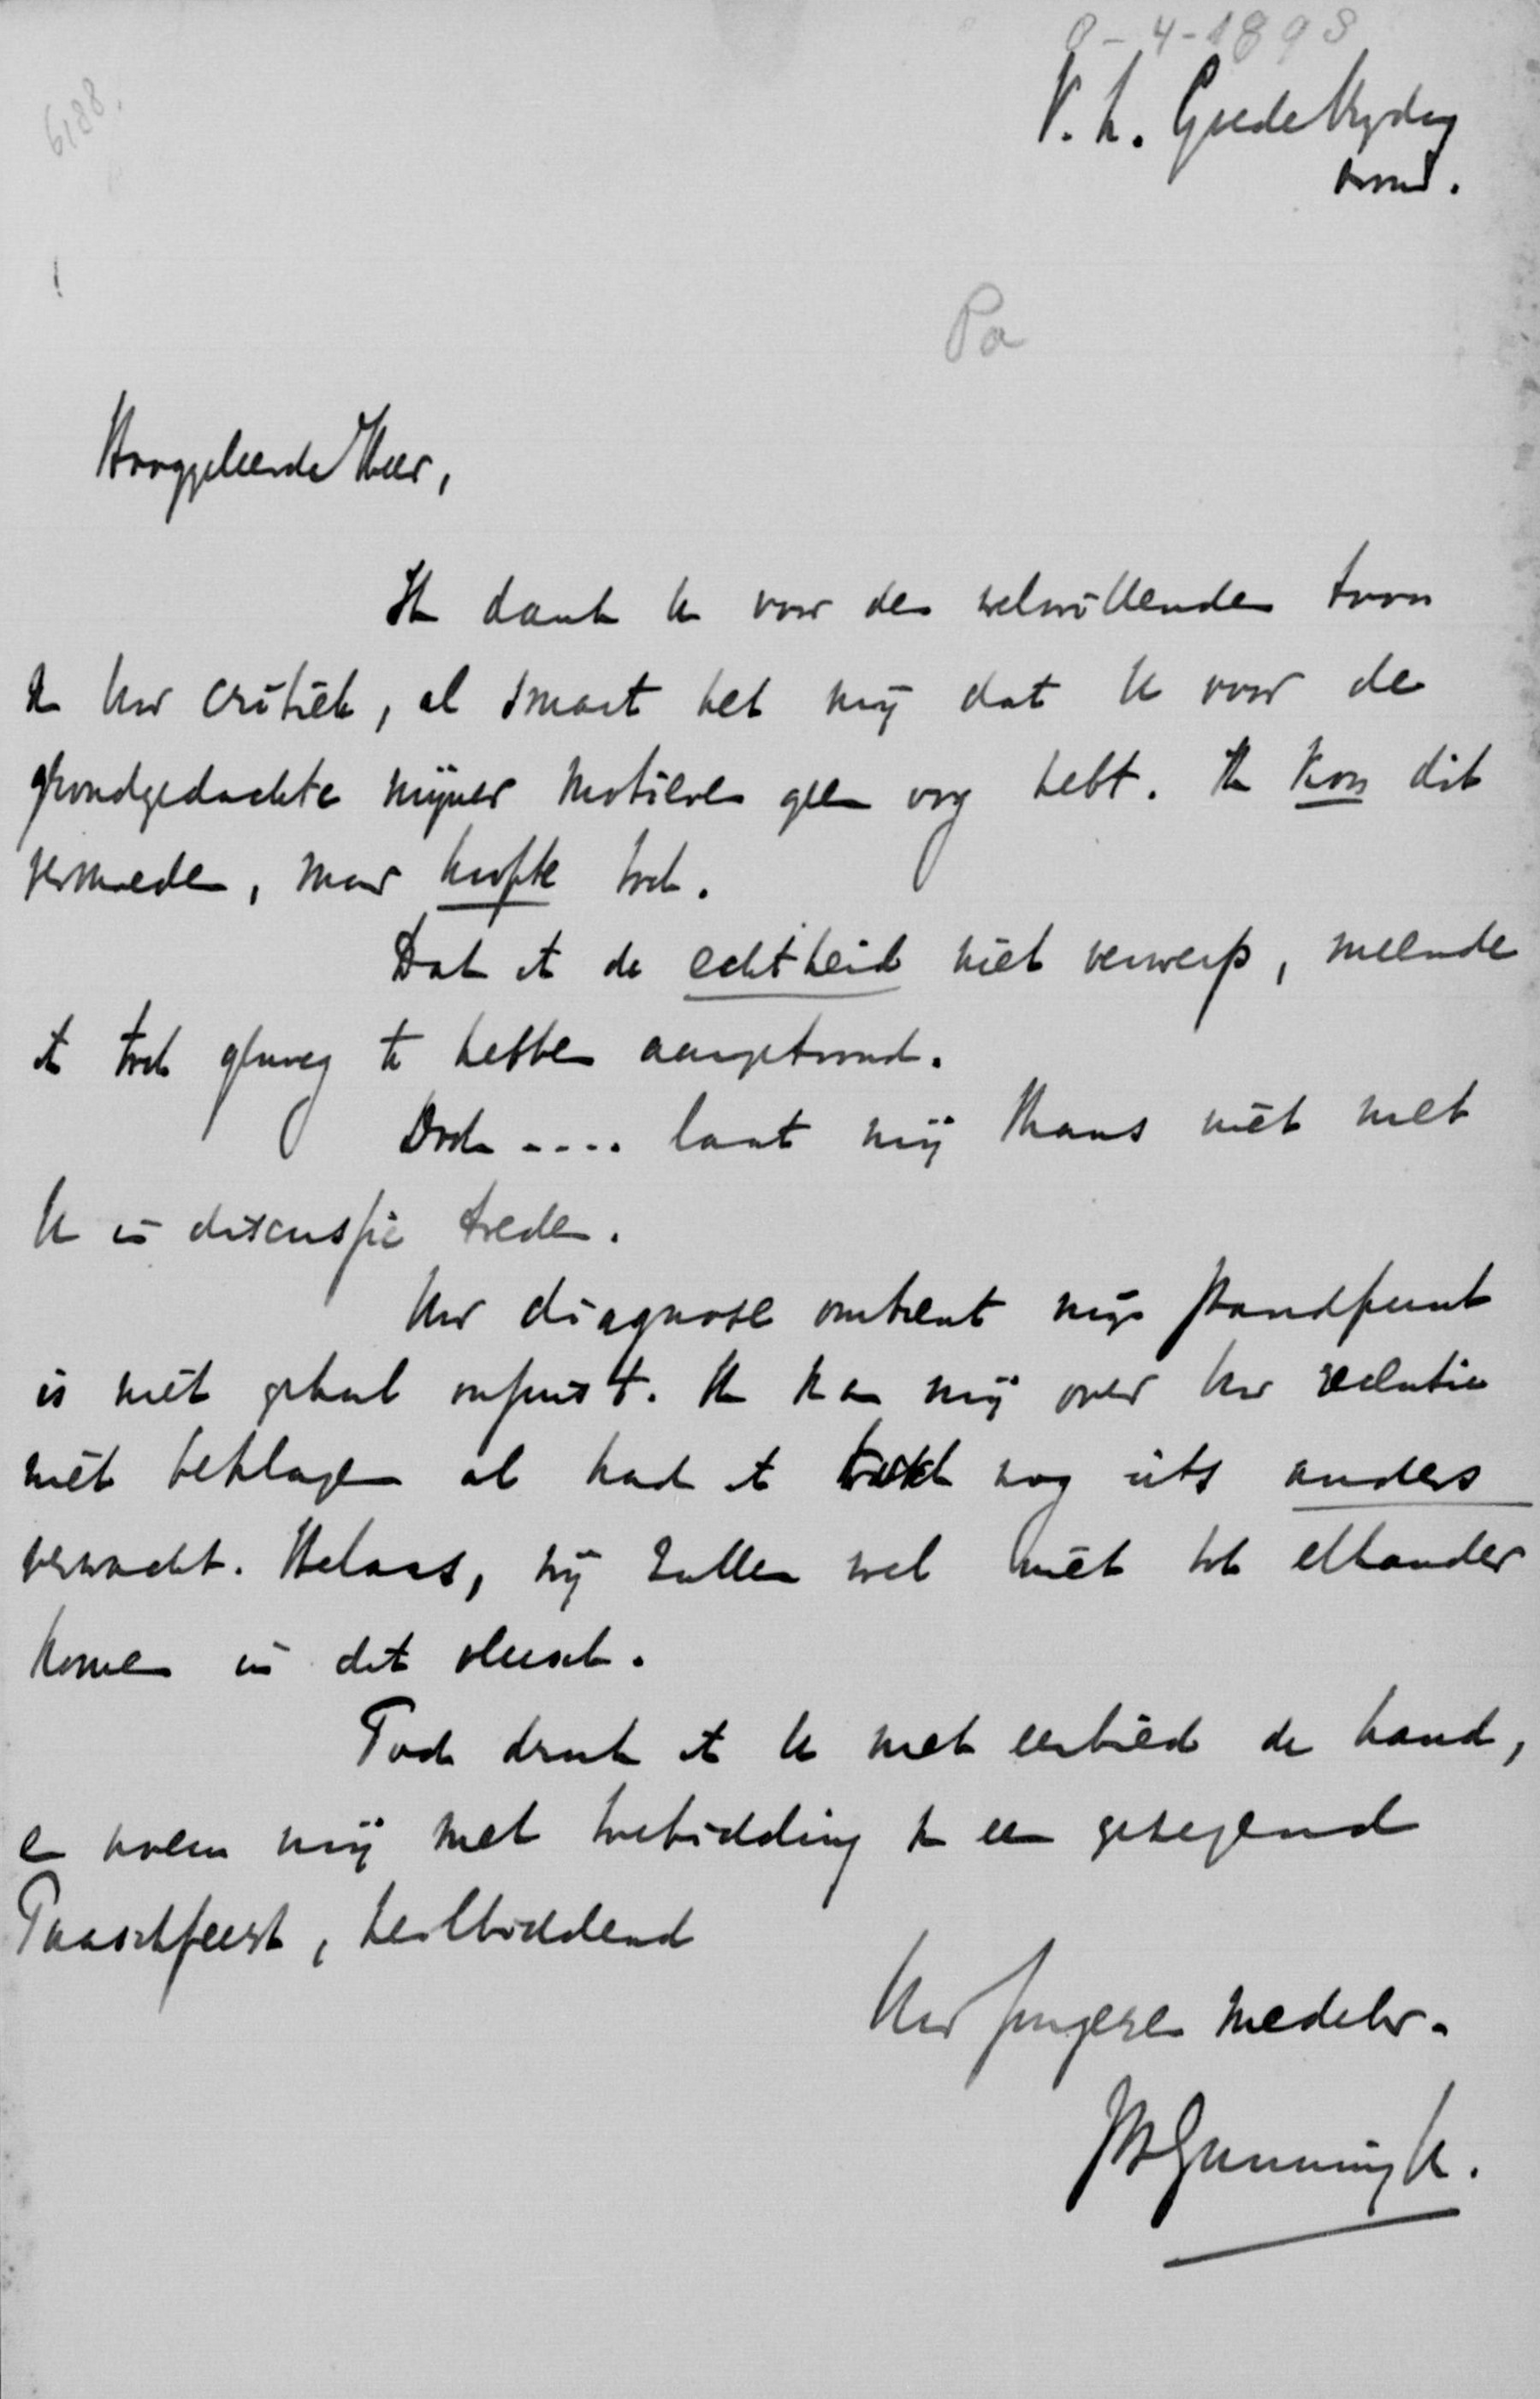 8-4-1898
6188.
V. h. Goede Vrydag
avond.
Pa
Hooggeleerde Heer,
Ik dank U voor den welwillenden toon
in Uw critiek, al smart het mij dat U voor de
grondgedachte mijner motieven geen oog hebt. Ik kon dit
vermoeden, maar hoopte toch.
Dat ik de echtheid niet verwerp, meende
ik toch genoeg te hebben aangetoond.
Doch .... laat mij thans niet met
U in discussie treden.
Uw diagnose omtrent mijn standpunt
is niet geheel onjuist. Ik kan mij over Uw reclutie
niet beklagen al had ik toch nog iets anders
verwacht. Helaas, wij zullen wel niet tot elkander
komen in dit vleesch.
Toch druk ik U met eerbied de hand,
en noem mij met toebidding van een gezegend
Paaschfeest, heilbiddend
Uw jongere medebr.
JH Gunning Jr.